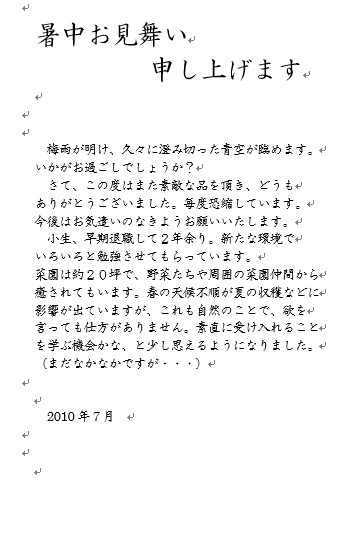 暑中お見舞い
申し上げます
梅雨が明け、久々に澄み切った青空が臨めます。
いかがお過ごしでしょうか？
さて、この度はまた素敵な品を頂き、どうも
ありがとうございました。毎度恐縮しています。
今後はお気遣いのなきようお願いいたします。
小生、早期退職して２年余り。新たな環境で
いろいろと勉強させてもらっています。
菜園は約２０坪で、野菜たちや周囲の菜園仲間から
癒されてもいます。春の天候不順が夏の収穫などに
影響が出ていますが、これも自然のことで、欲を
言っても仕方がありません。素直に受け入れること
を学ぶ機会かな、と少し思えるようになりました。
（まだなかなかですが・・・）
2010 年７月